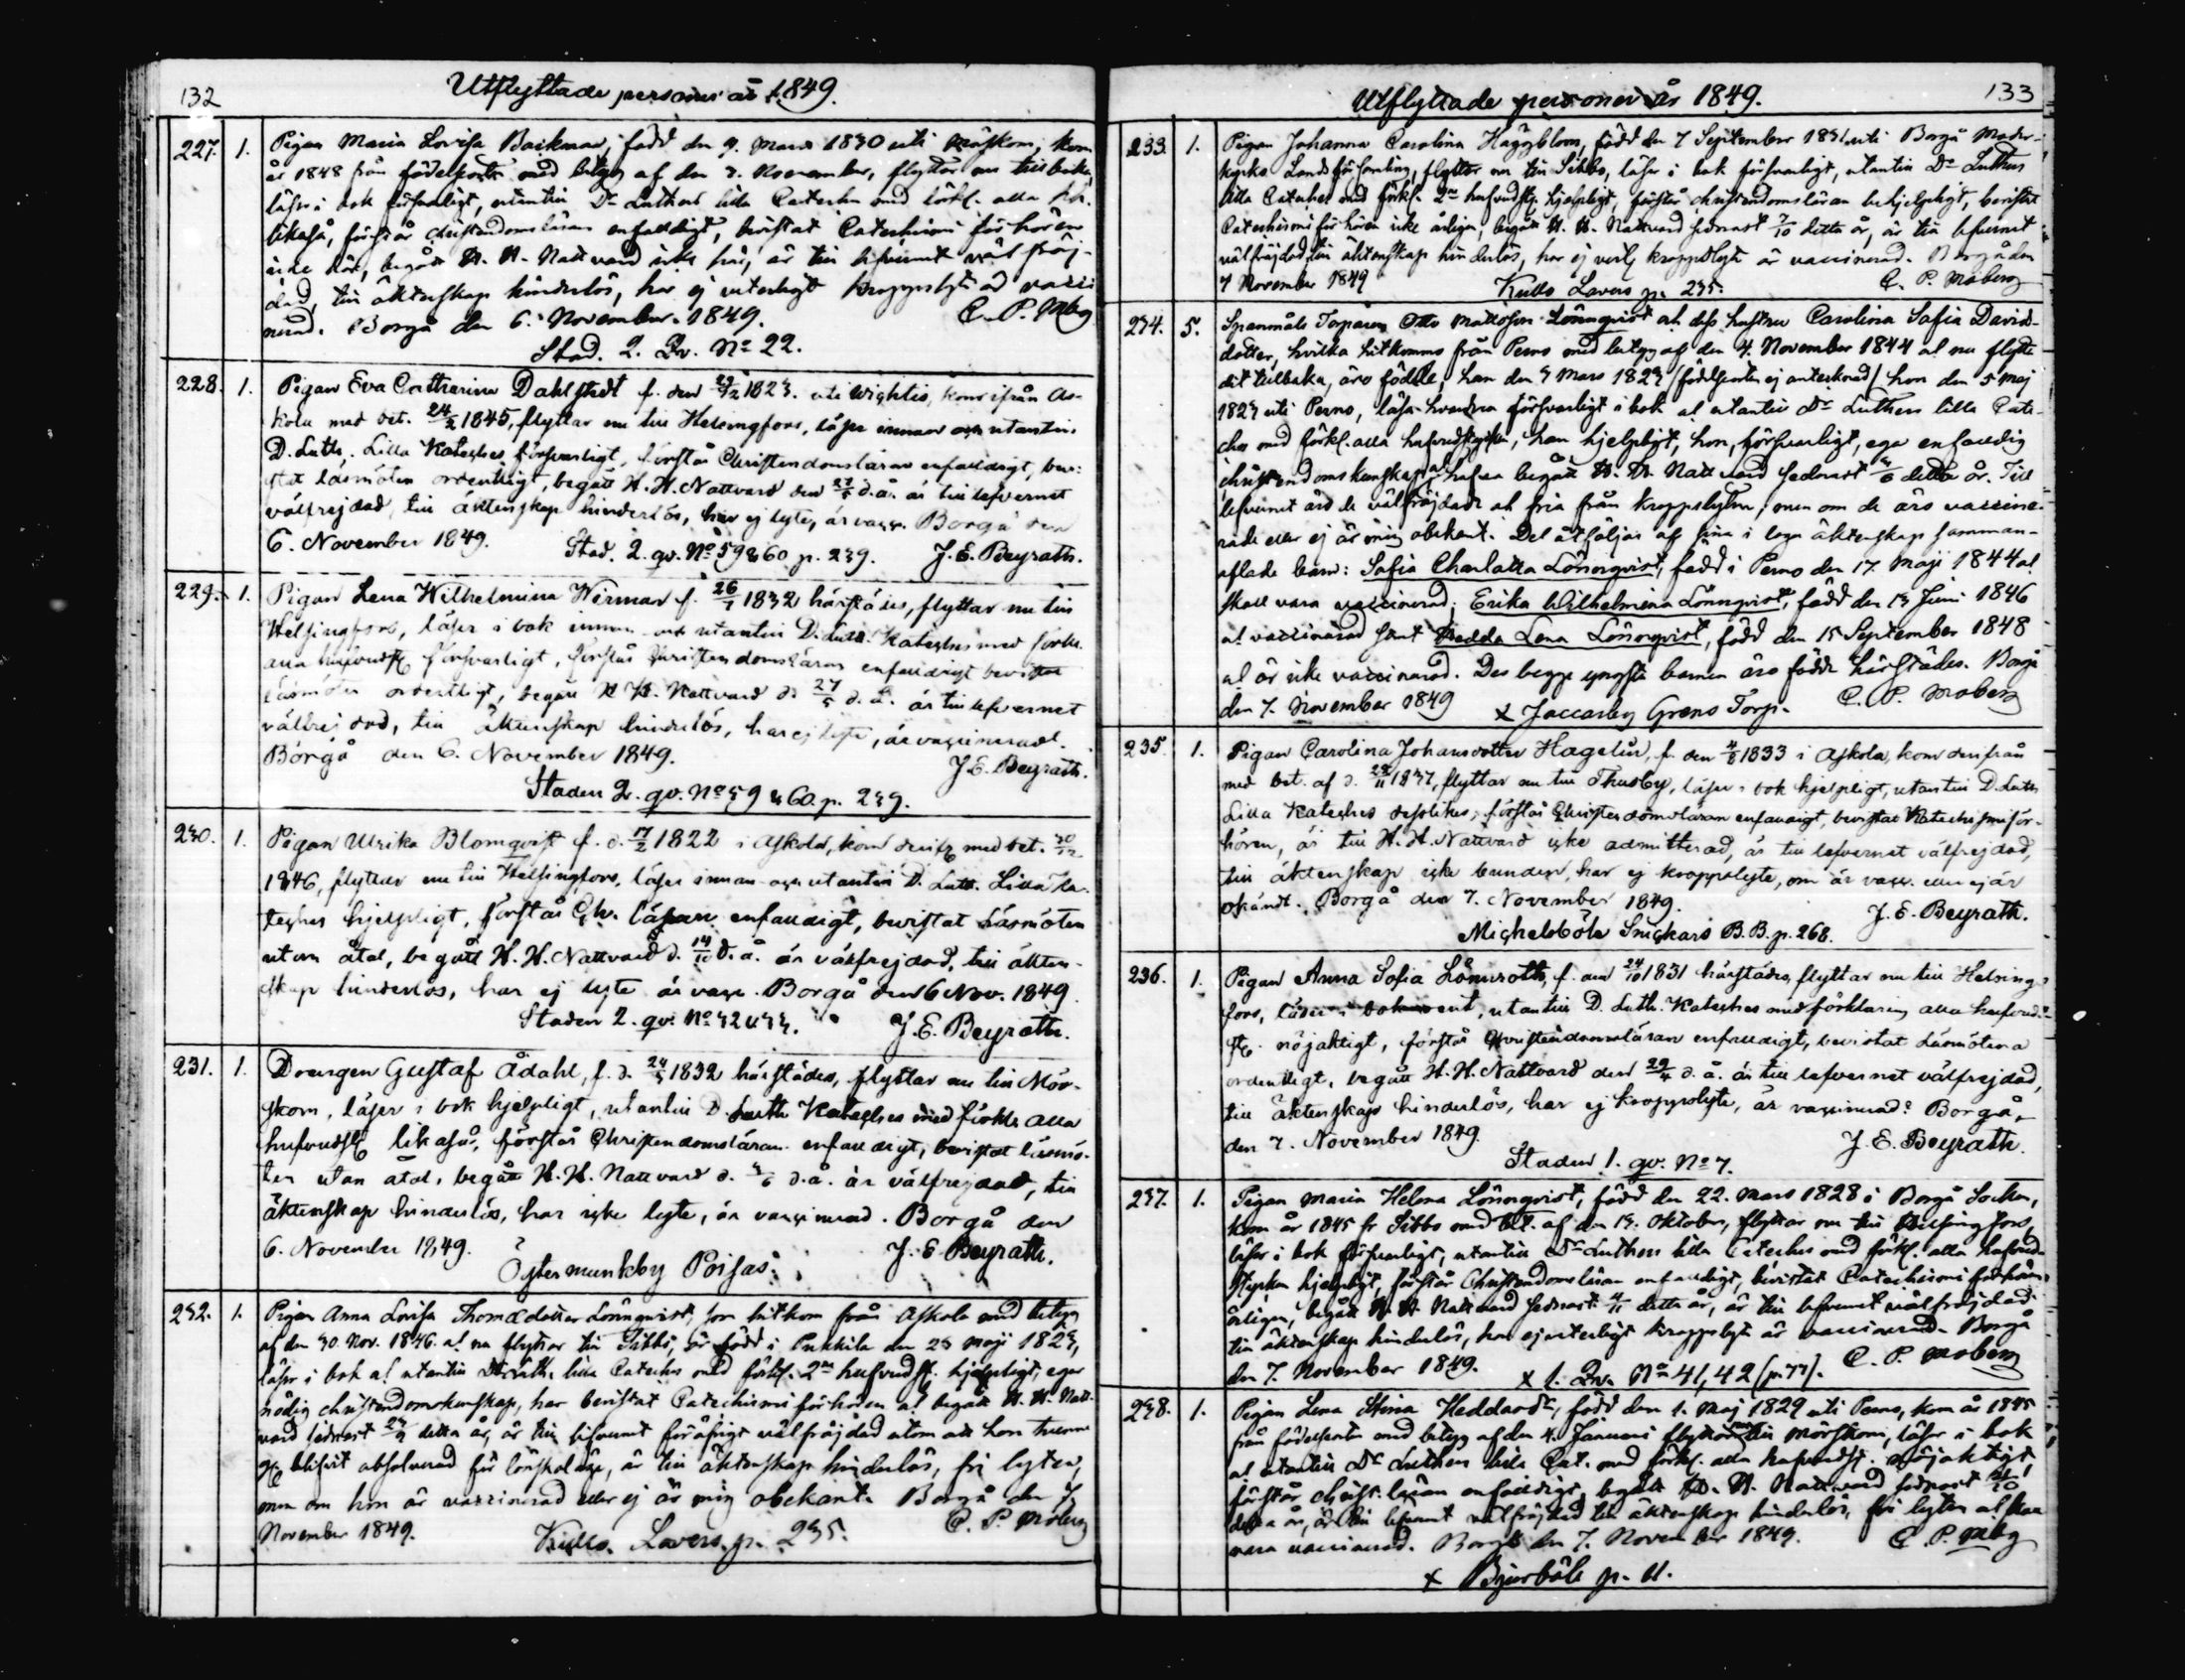 132
Utflyttade personer år 1849.
227. 1. Pigan Maria Lovisa Backman, född den 9. Mars 1830 uti Mörskom, kom
år 1848 från födelseorten med betyg af den 7. November, flyttar nu tillbaka,
läser i bok försvarligt, utantill Dr Luthers lilla Cateches med förkl. alla
likaså, förstår christendomsläran enfaldigt, bevistat Catechismi förhören
icke här, begått H. H. Nattvard icke här, är till lefvernet väl fräj-
dad, till äktenskap hinderlös, har ej veterligt kroppslyte och vacci
nerad. Borgå den 6. November 1849. C. P. Mbg
Stad. 2. Qv. No 22.
228. 1. Pigan Eva Catharina Dahlstedt f. den 29/12 1823. uti Wichtis, kom ifrån As-
kola med bet. 24/2 1845, flyttar nu till Helsingfors, läser innan och utantill
D. Luth. Lilla Kateches försvarligt, förstår Christendomsläran enfaldigt, bevi-
stat läsmöten ordentligt, begått H. H. Nattvard den 27/5 d. å. är till lefvernet
välfrejdad, till äktenskap hinderlös, har ej lyte, är vacc. Borgå den
6. November 1849. Stad. 2. qv. No 59 & 60 p. 239. J. E. Beyrath.
229. 1. Pigan Lena Wilhelmina Wirman f. 26/1 1832 härstädes, flyttar nu till
Helsingfors, läser i bok innan och utantill D. Luth. Kateches med förkl.
alla hufvudst. försvarligt, förstår Christendomsläran enfaldigt bevistat
läsmöten ordentligt, begått H. H. Nattvard d. 27/5 d. å. är till lefvernet
välfrejdad, till äktenskap hinderlös, har ej lyte, är vaccinerad.
Borgå den 6. November 1849. J. E. Beyrath.
Staden 2. qv. No 59 & 60. p. 239.
230. 1. Pigan Ulrika Blomqvist f. d. 17/2 1822 i Askola, kom derifr. med bet. 30/12
1846, flyttar nu till Helsingfors, läser innan och utantill D. Luth. Lilla Ka-
teches hjelpligt, förstår Ch. läran enfaldigt, bevistat Läsmöten
utan åtal, begått H. H. Nattvard d. 14/10 d. å. är välfrejdad, till äkten-
skap hinderlös, har ej lyte är vacc. Borgå den 6 Nov. 1849.
Staden 2. qv. No 32 & 33. J. E. Beyrath.
231. 1. Drengen Gustaf Ådahl, f. d. 24/5 1832 härstädes, flyttar nu till Mör-
skom, läser i bok hjelpligt, utantill D. Luth Kateches med förkl. alla
hufvudst. likaså, förstår Christendomsläran enfaldigt, bevistat läsmö-
ten utan åtal, begått H. H. Nattvard d. 3/6 d. å. är välfrejdad, till
äktenskap hinderlös, har icke lyte, är vaccinerad. Borgå den
6. November 1849. J. E. Beyrath.
Östermunkby Poisas.
232. 1. Pigan Anna Lovisa Thomædotter Lönnqvist, som hitkom från Askola med betyg
af den 30. Nov. 1846. at nu flyttar till Sibbo, är född i Pukkila den 23 Maji 1823,
läser i bok at utantill Dr Luth. lilla Cateches med förkl. 2ne hufvudst. hjelpligt, eger
nödig christendomskunskap, har bevistat Catechismi förhören at begått H. H. Natt-
vard sednast 23/9 detta år, är till lefvernet för öfrigt välfräjdad utom att hon tvenne
ggr blifvit absolverad för lönskaläge, är till äktenskap hinderlös, fri lyten,
men om hon är vaccinerad eller ej är mig obekant. Borgå den 7
November 1849. Kullo. Lavers. p. 235. C. P. Moberg
133
Utflyttade personer år 1849.
233. 1. Pigan Johanna Carolina Häggblom, född den 7 September 1831 uti Borgå Moder-
kyrko Landsförsamling, flyttar nu till Sibbo, läser i bok försvarligt, utantill Dr Luthers
lilla Cateches med förkl. 2ne hufvudst. hjelpligt, förstår christendomsläran behjelpligt, bevistat
Catechismi förhören icke årligen, begått H. H. Nattvard sednast 7/10 detta år, är till lefvernet
välfräjdad, till äktenskap hinderlös, har ej veterl. kroppslyte är vaccinerad. Borgå den
7 November 1849 Kullo Lavers p. 235. C. P. Moberg
234. 5. Spanmåls Torparen Otto Mattsson Lönnqvist at dess hustru Carolina Safia Davids-
dotter, hvilka hitkommo från Perno med betyg af den 4. November 1844 at nu flytta
dit tillbaka, äro födde, han den 7 Mars 1823 (födelseorten ej antecknad) hon den 5 Maj
1823 uti Perno, läsa hvardera försvarligt i bok at utantill Dr Luthers lilla Cate-
ches med förkl. alla hufvudstycken, han hjelpligt, hon försvarligt, ega enfaldig
christendomskunskap at hafva begått H. H. Nattvard sednast 3/6 detta år. Till
lefvernet äro de välfräjdade at fria från kroppslyten, men om de äro vaccine-
rade eller ej är mig obekant. Del åtföljas af sina i laga äktenskap samman-
aflade barn: Safia Charlotta Lönnqvist, född i Perno den 17. Maji 1844 at
skall vara vaccinerad; Erika Wilhelmina Lönnqvist, född den 13 Juni 1846
at vaccinerad samt Hedda Lena Lönnqvist, född den 15 September 1848
at är icke vaccinerad. Des begge yngsta barnen äro födde härstädes. Borgå
den 7. November 1849 x Jaccarby Grens Torp. C. P. Moberg
235. 1. Pigan Carolina Johansdotter Hagelin, f. den 4/8 1833 i Askola, kom derifrån
med bet. af d. 28/11 1847, flyttar nu till Thusby, läser i bok hjelpligt, utantill D. Luth.
Lilla Kateches desslikes, förstår Christendomsläran enfaldigt, bevistat Katechismiför-
hören, är till H. H. Nattvard icke admitterad, är till lefvernet välfrejdad,
till äktenskap icke bunden, har ej kroppslyte, om är vacc. eller ej är
okändt. Borgå den 7. November 1849. J. E. Beyrath.
Michelsböle Snickars B.B. p. 268.
236. 1. Pigan Anna Sofia Lönnroth, f. den 24/10 1831 härstädes, flyttar nu till Helsing-
fors, läser i bok rent, utantill D. Luth. Kateches med förklaring alla hufvud-
st. nöjaktigt, förstår Christendomsläran enfaldigt, bevistat Läsmötena
ordentligt, begått H. H. Nattvard den 29/4 d. å. är till lefvernet välfrejdad,
till äktenskap hinderlös, har ej kroppslyte, är vaccinerad. Borgå,
den 7. November 1849. J. E. Beyrath.
Staden 1. qv. No 7.
237. 1. Pigan Maria Helena Lönnqvist, född den 22. Mars 1828 i Borgå Socken,
kom år 1845 fr Sibbo med bet. af den 19. Oktober, flyttar nu till Helsingfors,
läser i bok försvarligt, utantill Dr Luthers lilla Cateches med förkl. alla hufvud-
stycken hjelpligt, förstår Christendomsläran enfaldigt, bevistat Catechismi förhören
årligen, begått H. H. Nattvard sednast 4/11 detta år, är till lefvernet välfräjdad
till äktenskap hinderlös, har ej veterligt kroppslyte är vaccinerad. Borgå
den 7. November 1849. x 1. Qv. No 41, 42 (p. 77). C. P. Moberg
238. 1. Pigan Lena Stina Heddardt, född den 1. Maj 1829 uti Perno, kom år 1845
från födelseorten med betyg af den 4. Januari flyttar nu till Mörskom, läser i bok
at utantill Dr Luthers lilla Cat. med förkl. alla hufvudst. nöjaktigt,
förstår christ. läran enfaldigt, begått H. H. Nattvard sednast 21/10
detta år, är till lefvernet välfräjdad till äktenskap hinderlös, fri lyten at skall
vara vaccinerad. Borgå den 7. November 1849. C. P. Mbg
x Bjurböle p. 11.